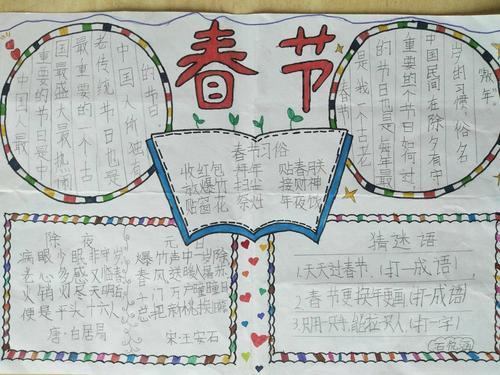 春节
中国人最
重要的节日是中
国最盛大最热闹
重要的一个古
老传统节日也是
中国人所独有
的节日
春节
是我一个古老
的节日也是全年最
重要的一个节日如何过
中国民间在除夕有守
岁的习惯俗名
熬年
春节习俗
收红包 拜年
放爆竹 扫尘
贴窗花 祭灶
贴春联
接财神
年夜饭
除夜
病眼少眠非守岁
老心多感又临春
火销灯尽天明后
便是平头六十人
唐·白居易
元日
爆竹声中一岁除
春风送暖入屠苏
千门万户曈曈日
总把新桃换旧符
宋:王安石
猜谜语
1.天天过春节.(打一成语)
2.春节更换年更画(打一成语)
3.只手,能拉人(打一字)